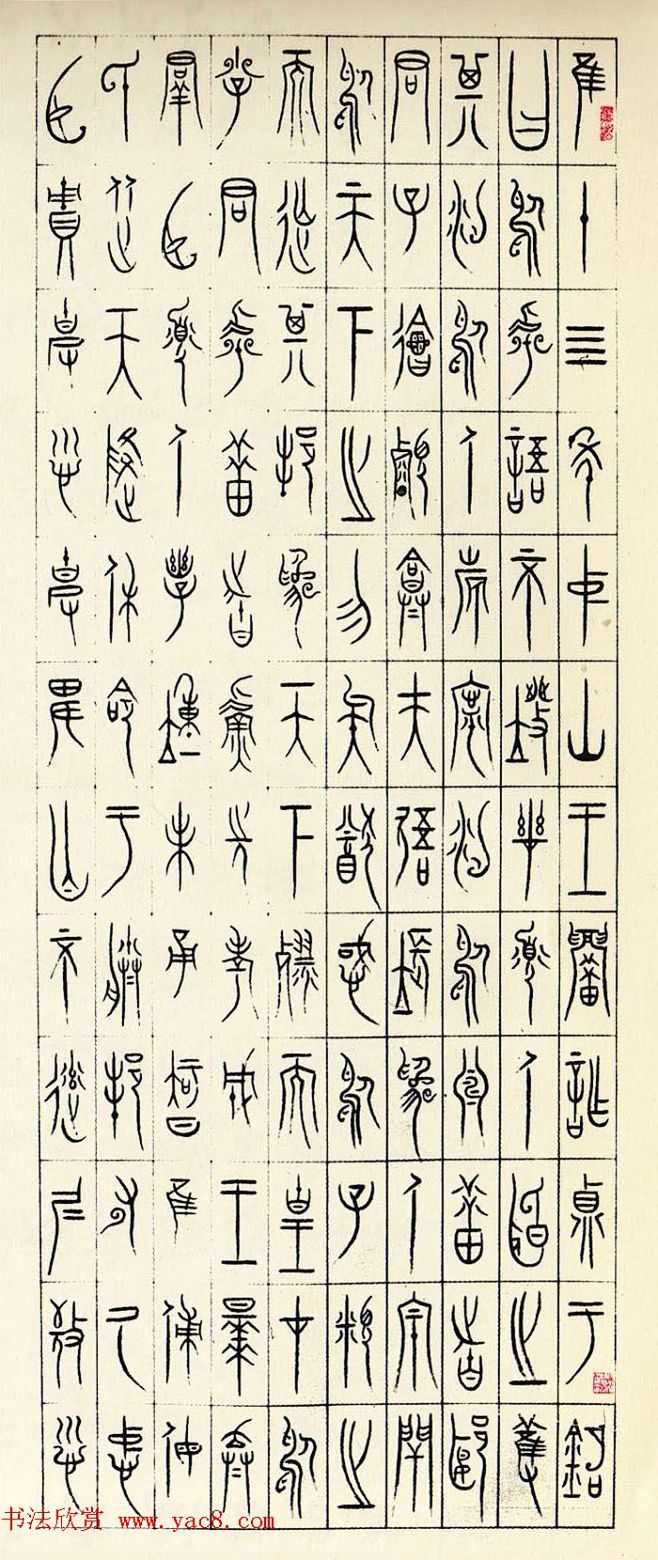 隹十四年中山王厝詐鼎于銘
曰於虖語不廢哉寡人聞之蒦
其汋於人施寧汋於淵昔者郾
君子噲叡弇夫悟長為人宗閈
於天下之勿矣猷惑於子之
而亡其邦為天下戮而皇才於
少君虖昔者吾先考成王早棄
群臣寡人幼童未甬智隹傅姆
氏從天降休命于朕邦有氒忠
臣賙克順克卑亡不率仁敬順
书法欣赏 www.yac8.com